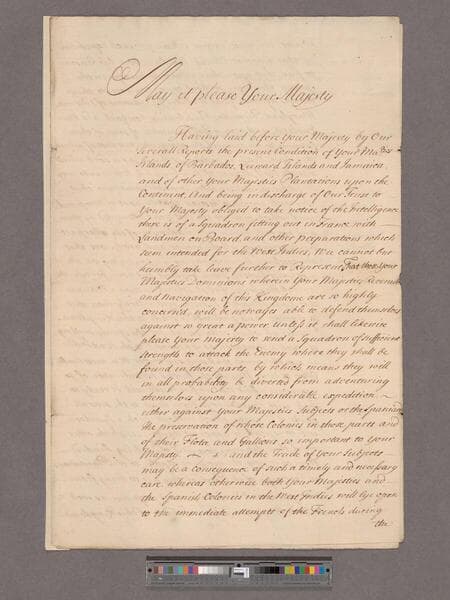 May it please Your Majesty
Having laid before Your Majesty by Our
severall Reports the present Condition of Your Ma.ties
Islands of Barbados, Leeward Islands and Jamaica
and of other Your Majesties Plantations upon the
Continent, And being in discharge of Our Trust to
Your Majesty obliged to take notice of the Intelligence
there is of a Squadron fitting out in France with
Landmen on Board, and other preparations which
seem intended for the West Indies, Wee cannot but
humbly take leave further to Represent, That those Your
Majesties Dominions wherein Your Majesties Revenue
and Navigation of this Kingdome are so highly
concerned, will be no waies able to defend themselves
against so great a power unless it shall likewise
please Your Majesty to send a Squadron of sufficient
strength to attack the Enemy where they shall be
found in those parts, by which means they will
in all probability be diverted from adventuring
themselves upon any considerable expedition
either against Your Majesties Subjects or the Spaniards
the preservation of whose Colonies in those parts and
of their Flota and Gallions so important to Your
Majesty and the Trade of Your Subjects
may be a consequence of such a timely and necessary
care, whereas otherwise both Your Majesties and
the Spanish Colonies in the West Indies will lye open
to the immediate attempts of the French during
the